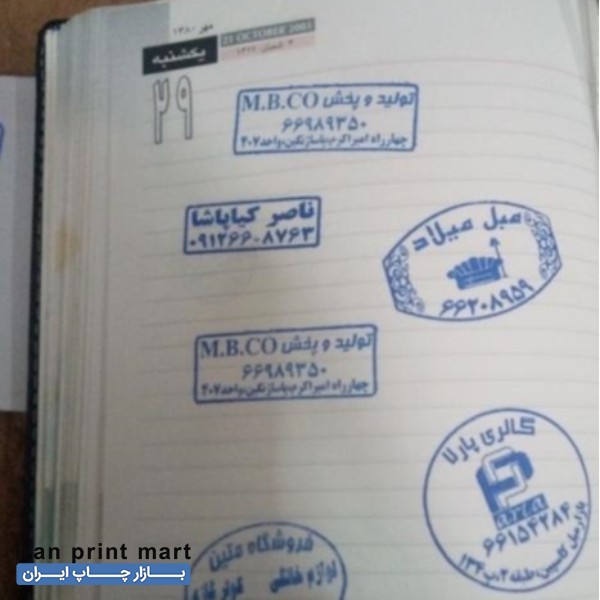 مهر ۱۳۸۰
21 OCTOBER 2001
۴ شعبان ۱۴۲۲
یکشنبه
۲۹
تولید و پخش M.B.CO
۶۶۹۸۹۳۵۰
چهارراه امیراکرم،پاساژنگین،واحد۴۰۷
ناصر کیاپاشا
۰۹۱۲۶۶۰۸۷۶۳
مبل میلاد
۶۶۲۰۸۹۵۹
تولید و پخش M.B.CO
۶۶۹۸۹۳۵۰
چهارراه امیراکرم،پاساژنگین،واحد۴۰۷
گالری پارلا
۶۶۱۵۴۲۸۴
بازار مبل
طبقه۲،پ۱۳۴
فروشگاه متین
لوازم خانگی
an print mart
بازار چاپ ایران